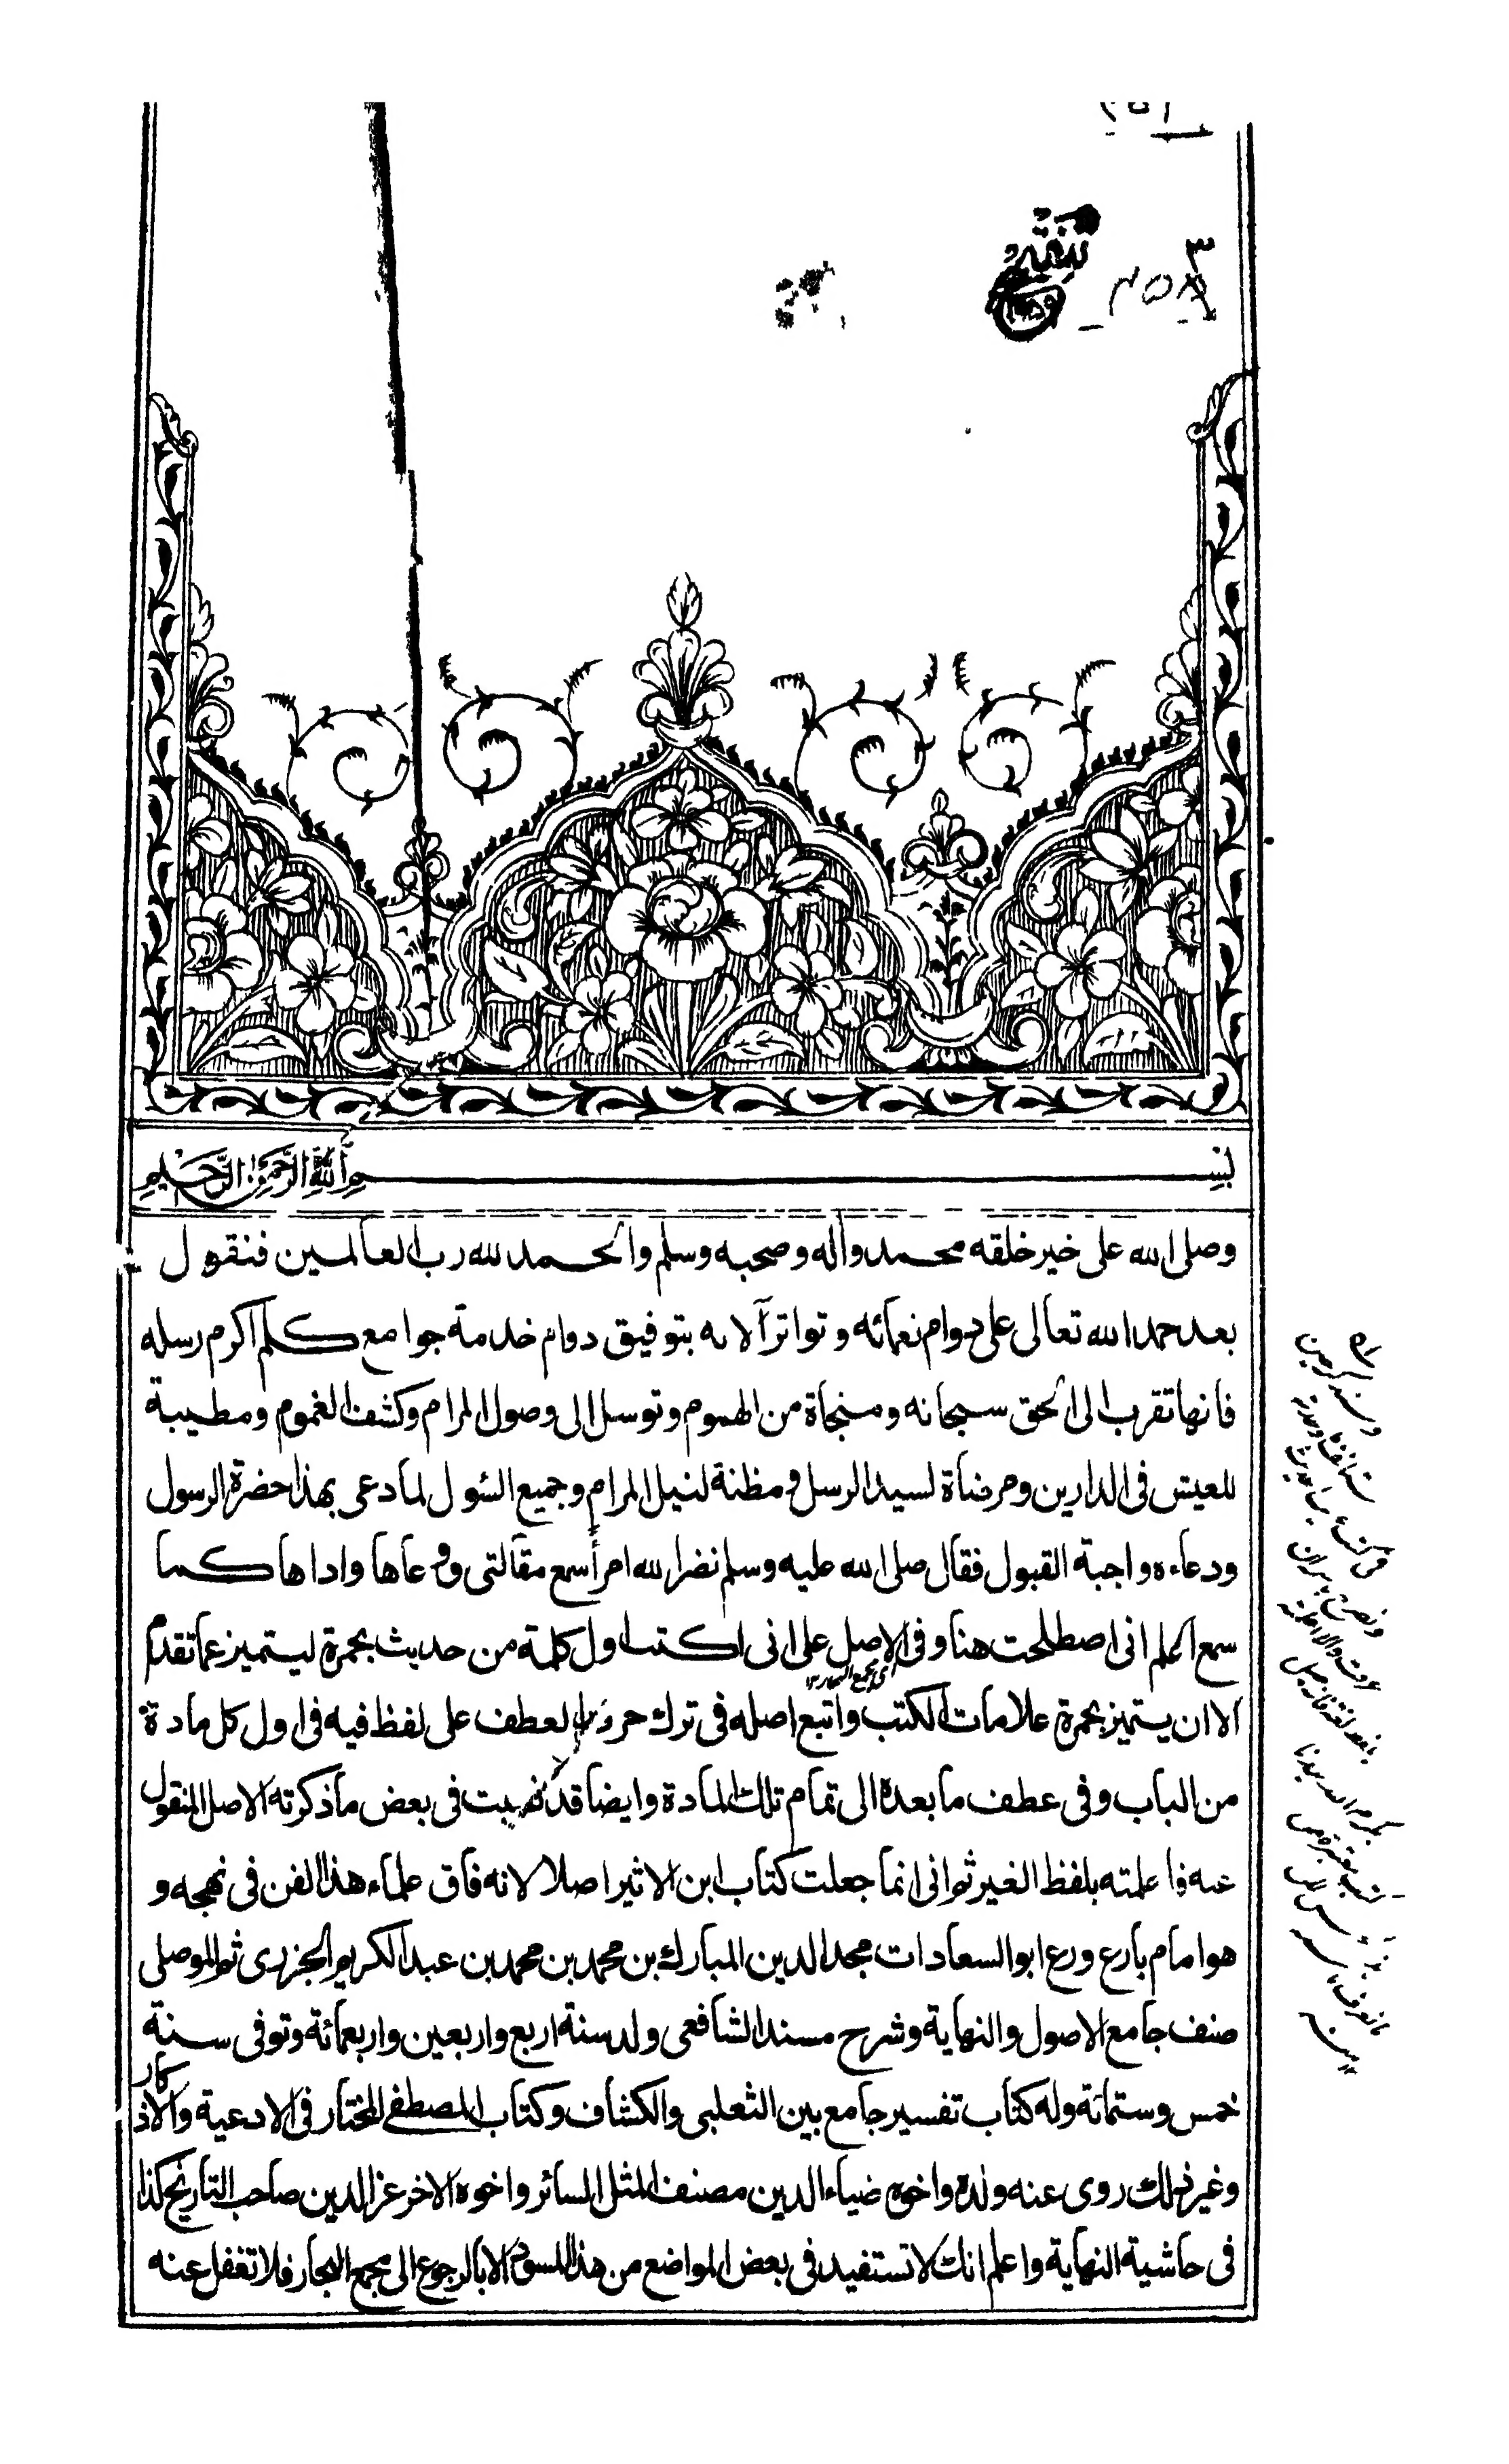 بسم الله الرحمن الرحيم
وصلى الله على خير خلقه محمد وآله وصحبه وسلم والحمد لله رب العالمين فنقول
بعد حمد الله تعالى على دوام نعمائه وتواتر آلائه بتوفيق دوام خدمة جوامع كلم اكرم رسله
فانها تقرب الى الحق سبحانه ومنجاة من الهموم وتوسل الى وصول المرام وكشف الغموم ومطيبة
للعيش فى الدارين ومرضاة لسيد الرسل ومظنة لنيل المرام وجميع السئول لما دعى بهذا حضرة الرسول
ودعاءه واجبة القبول فقال صلى الله عليه وسلم نضر الله امرأ سمع مقالتى ووعاها واداها كما
سمع اعلم انى اصطلحت هنا وفى الاصل على انى اكتب اول كلمة من حديث بحمرة ليتميز عما تقدم
الا ان يستميز بحمرة علامات الكتب واتبع اصله فى ترك حرف العطف على لفظ فيه فى اول كل مادة
اى مجمع البحار
من الباب وفى عطف ما بعده الى تمام تلك المادة وايضا قد نسبت فى بعض ما ذكرته الاصل المنقول
عنه فاعلمته بلفظ الغير ثم انى انما جعلت كتاب ابن الاثير اصلا لانه فاق علماء هذا الفن فى نهجه و
هو امام بارع ورع ابو السعادات مجد الدين المبارك بن محمد بن محمد بن عبد الكريم الجزرى ثم الموصلى
صنف جامع الاصول والنهاية وشرح مسند الشافعى ولد سنة اربع واربعين واربعمائة وتوفى سنة
خمس وستمائة وله كتاب تفسير جامع بين الثعلبى والكشاف وكتاب المصطفى المختار فى الادعية والاذكار
وغير ذلك روى عنه ولده واخوه ضياء الدين مصنف المثل السائر واخوه الاخر عز الدين صاحب التاريخ كذا
فى حاشية النهاية واعلم انك لا تستفيد فى بعض المواضع من هذا المسوق الا بالرجوع الى مجمع البحار فلا تغفل عنه